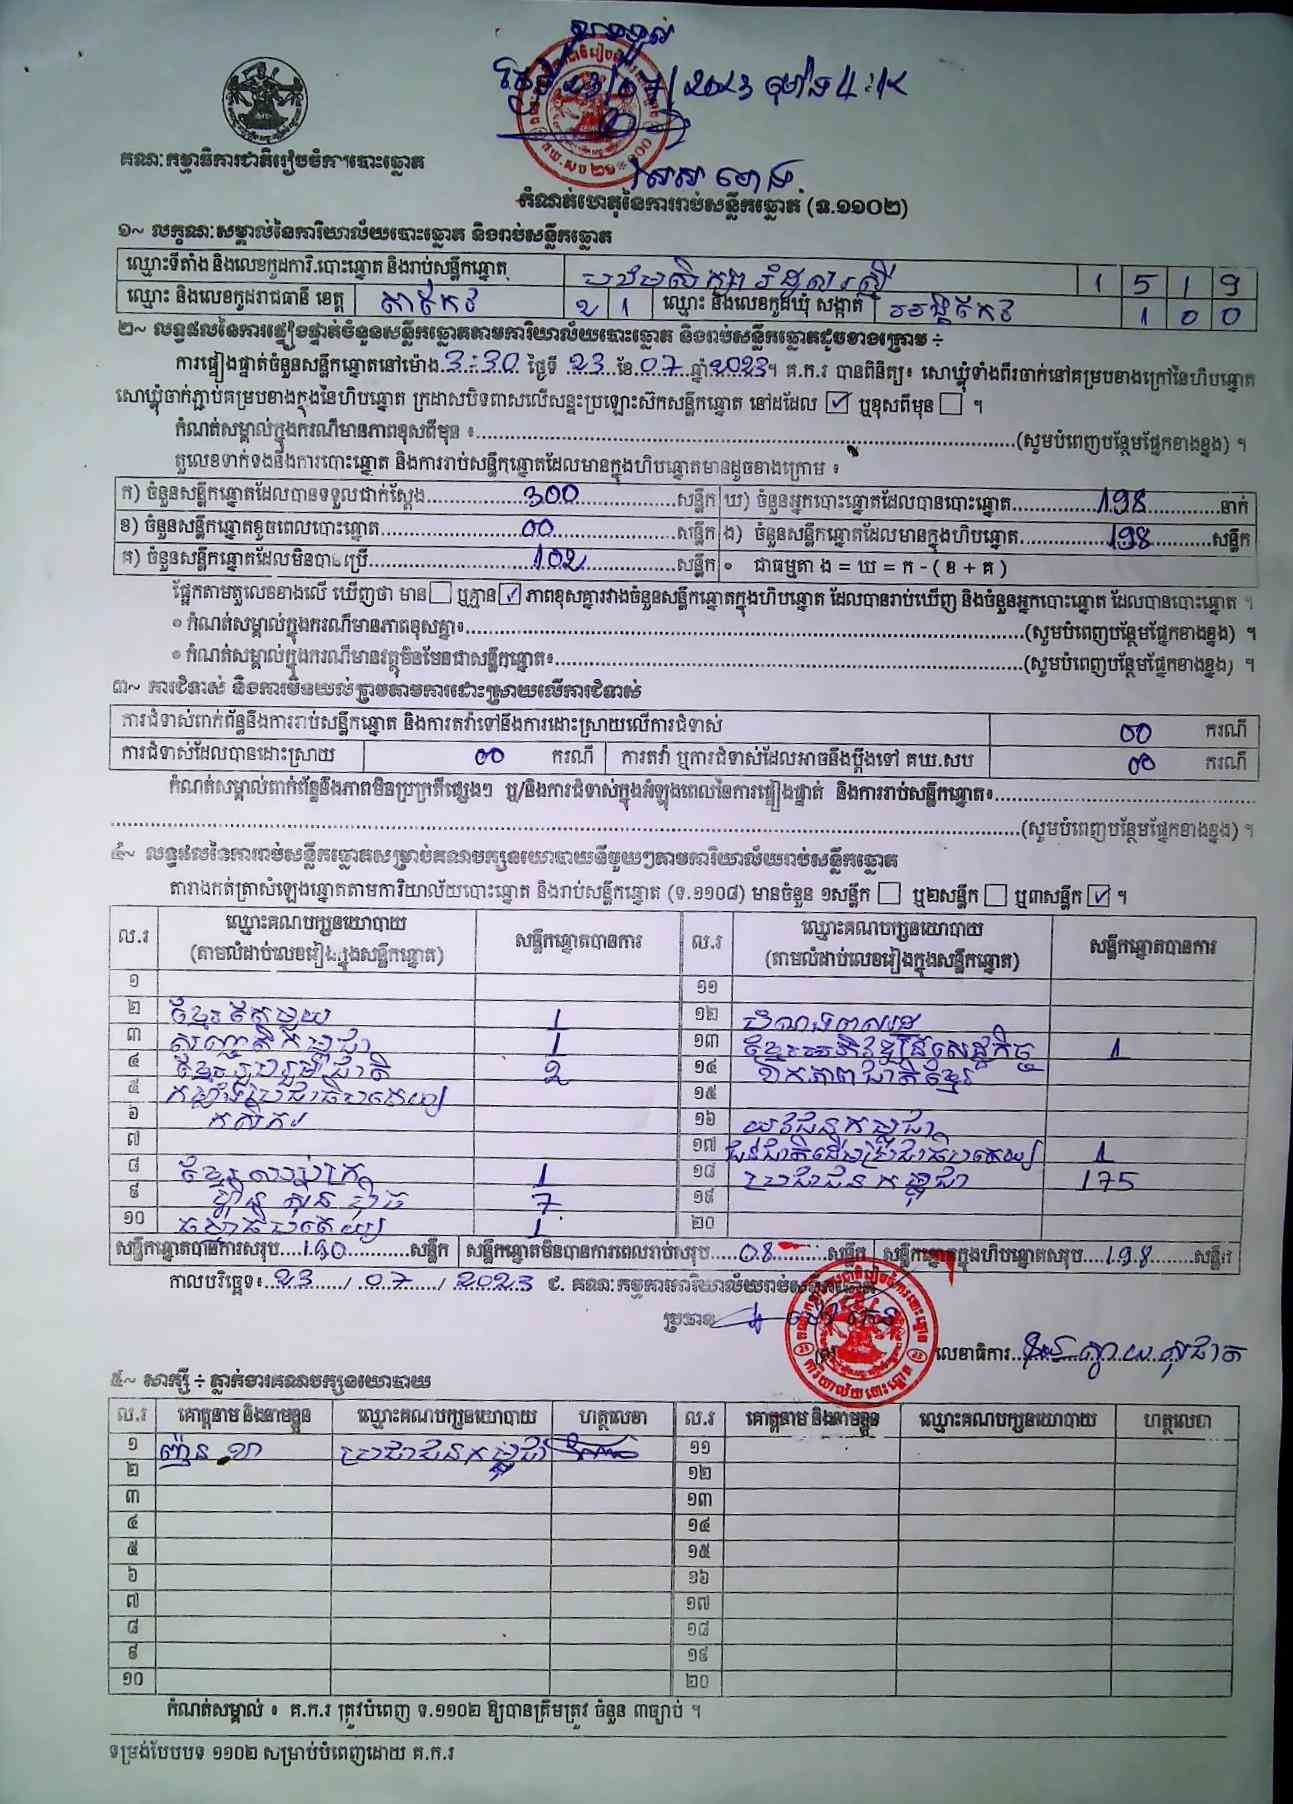 ថ្ងៃទី 23/07/2023 ម៉ោង 4:15
គណៈកម្មាធិការជាតិរៀបចំការបោះឆ្នោត
កំណត់ហេតុនៃការរាប់សន្លឹកឆ្នោត (ទ.១១០២)
១~ លក្ខណៈសម្គាល់នៃការិយាល័យបោះឆ្នោត និងរាប់សន្លឹកឆ្នោត
ឈ្មោះទីតាំង និងលេខកូដការិ.បោះឆ្នោត និងរាប់សន្លឹកឆ្នោត 1519
ឈ្មោះ និងលេខកូដរាជធានី ខេត្ត តាកែវ 21 ឈ្មោះ និងលេខកូដឃុំ សង្កាត់ រកាក្នុង 100
២~ លទ្ធផលនៃការផ្ទៀងផ្ទាត់ចំនួនសន្លឹកឆ្នោតតាមការិយាល័យបោះឆ្នោត និងរាប់សន្លឹកឆ្នោតដូចខាងក្រោម ÷
ការផ្ទៀងផ្ទាត់ចំនួនសន្លឹកឆ្នោតនៅម៉ោង 3:30 ថ្ងៃទី 23 ខែ 07 ឆ្នាំ 2023។ គ.ក.រ បានពិនិត្យ៖ សោឃ្លុំទាំងពីរចាក់នៅគម្របខាងក្រៅនៃហិបឆ្នោត
សោឃ្លុំចាក់ភ្ជាប់គម្របខាងក្នុងនៃហិបឆ្នោត ក្រដាសបិទពាសលើសន្ទះប្រឡោះស៊កសន្លឹកឆ្នោត នៅដដែល ☑ ឬខុសពីមុន ☐ ។
កំណត់សម្គាល់ក្នុងករណីមានភាពខុសពីមុន ៖ (សូមបំពេញបន្ថែមផ្នែកខាងខ្នង) ។
តួលេខទាក់ទងនឹងការបោះឆ្នោត និងការរាប់សន្លឹកឆ្នោតដែលមានក្នុងហិបឆ្នោតមានដូចខាងក្រោម ៖
ក) ចំនួនសន្លឹកឆ្នោតដែលបានទទួលជាក់ស្តែង 300 សន្លឹក ឃ) ចំនួនអ្នកបោះឆ្នោតដែលបានបោះឆ្នោត 198 នាក់
ខ) ចំនួនសន្លឹកឆ្នោតខូចពេលបោះឆ្នោត 00 សន្លឹក ង) ចំនួនសន្លឹកឆ្នោតដែលមានក្នុងហិបឆ្នោត 198 សន្លឹក
គ) ចំនួនសន្លឹកឆ្នោតដែលមិនបានប្រើ 102 សន្លឹក ៖ ជាធម្មតា ង = ឃ = ក - ( ខ + គ )
ផ្អែកតាមតួលេខខាងលើ ឃើញថា មាន ☐ ឬគ្មាន ☑ ភាពខុសគ្នារវាងចំនួនសន្លឹកឆ្នោតក្នុងហិបឆ្នោត ដែលបានរាប់ឃើញ និងចំនួនអ្នកបោះឆ្នោត ដែលបានបោះឆ្នោត ។
• កំណត់សម្គាល់ក្នុងករណីមានភាពខុសគ្នា៖ (សូមបំពេញបន្ថែមផ្នែកខាងខ្នង) ។
• កំណត់សម្គាល់ក្នុងករណីមានវត្ថុមិនមែនជាសន្លឹកឆ្នោត៖ (សូមបំពេញបន្ថែមផ្នែកខាងខ្នង) ។
៣~ ការជំទាស់ និងការមិនយល់ព្រមតាមការដោះស្រាយលើការជំទាស់
ការជំទាស់ពាក់ព័ន្ធនឹងការរាប់សន្លឹកឆ្នោត និងការតវ៉ាទៅនឹងការដោះស្រាយលើការជំទាស់ 00 ករណី
ការជំទាស់ដែលបានដោះស្រាយ 00 ករណី ការតវ៉ា ឬការជំទាស់ដែលអាចនឹងប្តឹងទៅ គឃ.សប 00 ករណី
កំណត់សម្គាល់ពាក់ព័ន្ធនឹងភាពមិនប្រក្រតីផ្សេងៗ ឬ/និងការជំទាស់ក្នុងអំឡុងពេលនៃការផ្ទៀងផ្ទាត់ និងការរាប់សន្លឹកឆ្នោត៖
(សូមបំពេញបន្ថែមផ្នែកខាងខ្នង) ។
៤~ លទ្ធផលនៃការរាប់សន្លឹកឆ្នោតសម្រាប់គណបក្សនយោបាយនីមួយៗតាមការិយាល័យរាប់សន្លឹកឆ្នោត
តារាងកត់ត្រាសំឡេងឆ្នោតតាមការិយាល័យបោះឆ្នោត និងរាប់សន្លឹកឆ្នោត (ទ.១១០៨) មានចំនួន ១សន្លឹក ☐ ឬ២សន្លឹក ☐ ឬ៣សន្លឹក ☑ ។
ល.រ ឈ្មោះគណបក្សនយោបាយ (តាមលំដាប់លេខរៀងក្នុងសន្លឹកឆ្នោត) សន្លឹកឆ្នោតបានការ ល.រ ឈ្មោះគណបក្សនយោបាយ (តាមលំដាប់លេខរៀងក្នុងសន្លឹកឆ្នោត) សន្លឹកឆ្នោតបានការ
១ ១១
២ ខ្មែរតែមួយ 1 ១២
៣ សញ្ជាតិកម្ពុជា 1 ១៣ ខ្មែរអភិវឌ្ឍន៍សេដ្ឋកិច្ច 1
៤ ខ្មែររួបរួមជាតិ 2 ១៤ ឯកភាពជាតិខ្មែរ
៥ កម្លាំងប្រជាធិបតេយ្យ ១៥
៦ កសិករ ១៦ យុវជនកម្ពុជា
៧ ១៧ ជនជាតិដើមប្រជាធិបតេយ្យ 1
៨ ខ្មែរឈប់ក្រ 1 ១៨ ប្រជាជនកម្ពុជា 175
៩ ហ្វ៊ុនស៊ិនប៉ិច 7 ១៩
១០ ធម្មាធិបតេយ្យ 1 ២០
សន្លឹកឆ្នោតបានការសរុប 190 សន្លឹក សន្លឹកឆ្នោតមិនបានការពេលរាប់សរុប 08 សន្លឹក សន្លឹកឆ្នោតក្នុងហិបឆ្នោតសរុប 198 សន្លឹក
កាលបរិច្ឆេទ៖ 23 / 07 / 2023 ជ. គណៈកម្មការការិយាល័យរាប់សន្លឹកឆ្នោត
ប្រធាន លេខាធិការ
៥~ សាក្សី ÷ ភ្នាក់ងារគណបក្សនយោបាយ
ល.រ គោត្តនាម និងនាមខ្លួន ឈ្មោះគណបក្សនយោបាយ ហត្ថលេខា ល.រ គោត្តនាម និងនាមខ្លួន ឈ្មោះគណបក្សនយោបាយ ហត្ថលេខា
១ ប្រជាជនកម្ពុជា ១១
២ ១២
៣ ១៣
៤ ១៤
៥ ១៥
៦ ១៦
៧ ១៧
៨ ១៨
៩ ១៩
១០ ២០
កំណត់សម្គាល់ ៖ គ.ក.រ ត្រូវបំពេញ ទ.១១០២ ឱ្យបានត្រឹមត្រូវ ចំនួន ៣ច្បាប់ ។
ទម្រង់បែបបទ ១១០២ សម្រាប់បំពេញដោយ គ.ក.រ